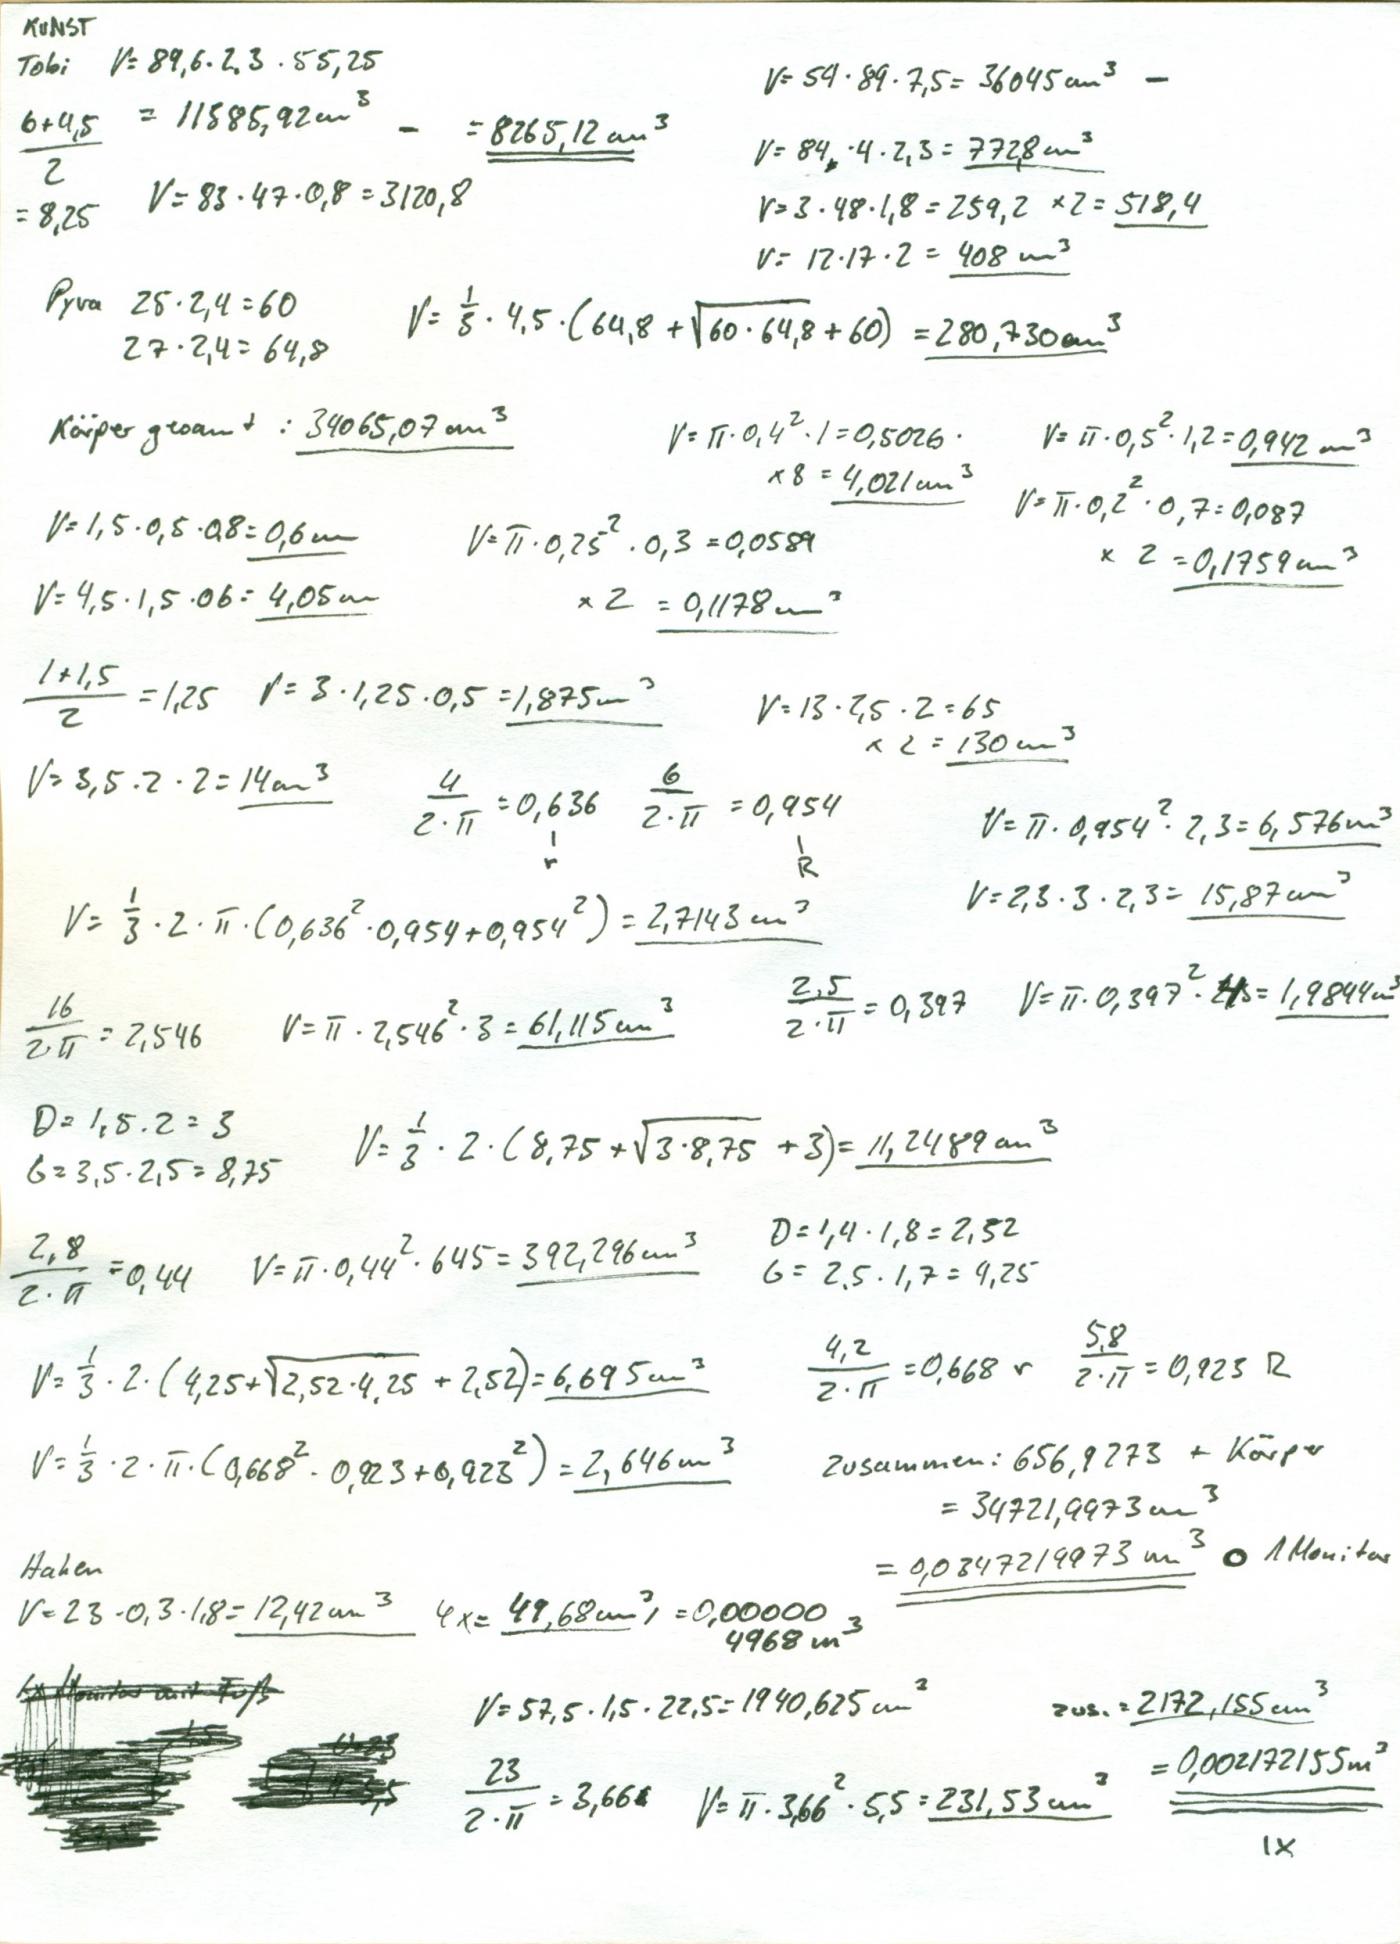 KUNST
Tobi V= 89,6 · 2,3 · 55,25
6+4,5 / 2 = 8,25
= 11585,92 cm³ - = 8265,12 cm³
V= 83 · 47 · 0,8 = 3120,8
V= 54 · 89 · 7,5 = 36045 cm³ -
V= 84, · 4 · 2,3 = 772,8 cm³
V= 3 · 48 · 1,8 = 259,2 x2 = 518,4
V= 12 · 17 · 2 = 408 cm³
Pyra 25 · 2,4 = 60
27 · 2,4 = 64,8
V= 1/3 · 4,5 · (64,8 + √60 · 64,8 + 60) = 280,730 cm³
Körper gesamt : 34065,07 cm³
V= π · 0,4² · 1 = 0,5026 ·
x 8 = 4,021 cm³
V= π · 0,5² · 1,2 = 0,942 cm³
V= π · 0,2² · 0,7 = 0,087
x 2 = 0,1759 cm³
V= 1,5 · 0,5 · 0,8 = 0,6 cm
V= π · 0,25² · 0,3 = 0,0589
x 2 = 0,1178 cm³
V= 4,5 · 1,5 · 06 = 4,05 cm
1+1,5 / 2 = 1,25 V= 3 · 1,25 · 0,5 = 1,875 cm³
V= 13 · 2,5 · 2 = 65
x 2 = 130 cm³
V= 3,5 · 2 · 2 = 14 cm³
4 / 2 · π = 0,636
r
6 / 2 · π = 0,954
R
V= π · 0,954² · 2,3 = 6,576 cm³
V= 2,3 · 3 · 2,3 = 15,87 cm³
V= 1/3 · 2 · π · (0,636² · 0,954 + 0,954²) = 2,7143 cm³
16 / 2 · π = 2,546 V= π · 2,546² · 3 = 61,115 cm³
2,5 / 2 · π = 0,397 V= π · 0,397² · = 1,9844 cm³
D= 1,5 · 2 = 3
G= 3,5 · 2,5 = 8,75
V= 1/3 · 2 · (8,75 + √3 · 8,75 + 3) = 11,2489 cm³
2,8 / 2 · π = 0,44 V= π · 0,44² · 645 = 392,296 cm³
D= 1,4 · 1,8 = 2,52
G= 2,5 · 1,7 = 4,25
V= 1/3 · 2 · (4,25 + √2,52 · 4,25 + 2,52) = 6,695 cm³
4,2 / 2 · π = 0,668 r 5,8 / 2 · π = 0,923 R
V= 1/3 · 2 · π · (0,668² · 0,923 + 0,923²) = 2,646 cm³
zusammen: 656,9273 + Körper
= 34721,9973 cm³
= 0,0347219973 m³ o 1 Monitor
Haken
V= 23 · 0,3 · 1,8 = 12,42 cm³ 4x= 49,68 cm³, = 0,00000
4968 m³
V= 57,5 · 1,5 · 22,5 = 1940,625 cm³
zus. = 2172,155 cm³
= 0,002172155 m³
1x
23 / 2 · π = 3,66 V= π · 3,66² · 5,5 = 231,53 cm³